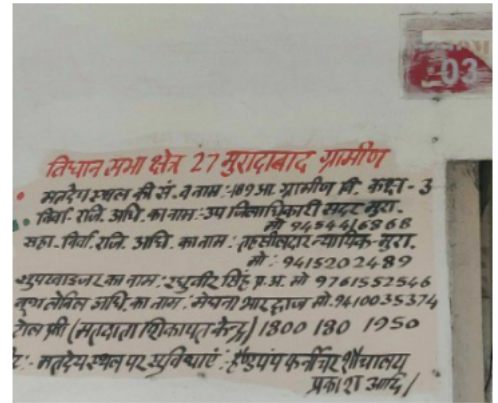 03
विधान सभा क्षेत्र 27 मुरादाबाद ग्रामीण
मतदेय स्थल की सं. व नाम :-189 आ. ग्रामीण वि. कक्ष - 3
निर्वा. रजि. अधि. का नाम : उप जिलाधिकारी सदर मुरा.
मो 9454416868
सहा. निर्वा. रजि. अधि. का नाम : तहसीलदार न्यायिक-मुरा.
मो : 9415202489
सुपरवाइजर का नाम : रघुवीर सिंह प्र.अ. मो 9761552546
बूथ लेविल अधि. का नाम : मेघना भारद्वाज मो. 9410035374
टोल फ्री (मतदाता शिकायत केन्द्र) 1800 180 1950
:- मतदेय स्थल पर सुविधाएं : हैण्डपंप फर्नीचर शौचालय
प्रकाश आदि।